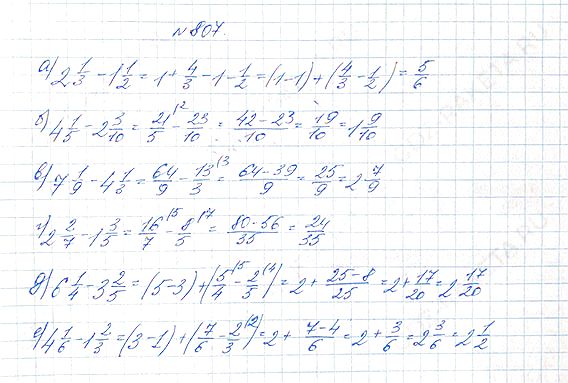 №807.
а) 2 1/3 - 1 1/2 = 1 + 4/3 - 1 - 1/2 = (1-1) + (4/3 - 1/2) = 5/6
б) 4 1/5 - 2 3/10 = 21/5 (2 - 23/10 = (42-23)/10 = 19/10 = 1 9/10
в) 7 1/9 - 4 1/3 = 64/9 - 13/3 (3 = (64-39)/9 = 25/9 = 2 7/9
г) 2 2/7 - 1 3/5 = 16/7 (5 - 8/5 (7 = (80-56)/35 = 24/35
д) 6 1/4 - 3 2/5 = (5-3) + (5/4 (5 - 2/5 (4) = 2 + (25-8)/25 = 2 + 17/20 = 2 17/20
е) 4 1/6 - 1 2/3 = (3-1) + (7/6 - 2/3 (2) = 2 + (7-4)/6 = 2 + 3/6 = 2 3/6 = 2 1/2